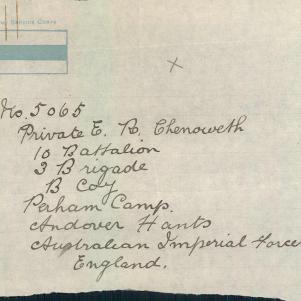 Service Corps
No. 5065
Private E. R. Chenoweth
10 Battalion
3 Brigade
B Coy
Perham Camp.
Andover Hants
Australian Imperial Force
England.